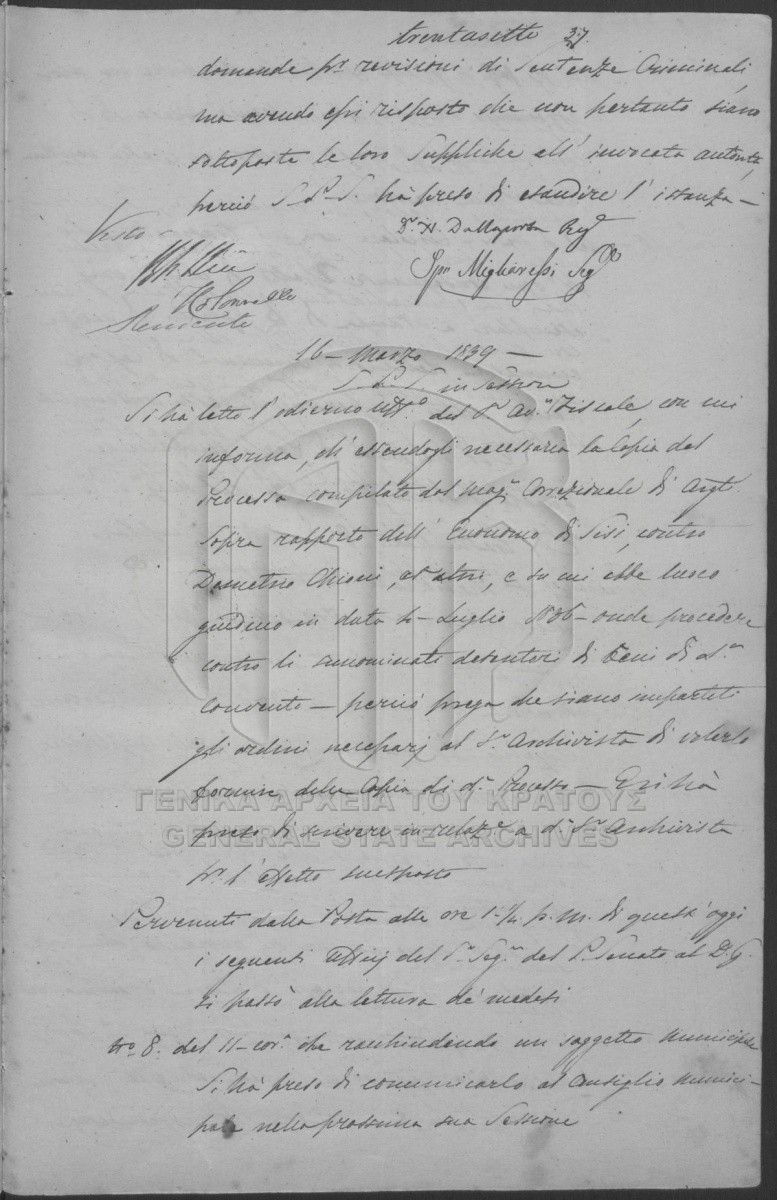 trentasette 37.
domande pr revisioni di Sentenze Criminali,
ma avendo essi risposto che non pertanto siano
sottoposte le loro Suppliche all' invocata autorità,
perciò S. P. S. ha preso di esaudire l' istanza —
Visto —
Dr N. Dallaporta Regte
Spn Migliaressi Segrio
Residente
16 — Marzo 1839 —
S. P. S. in Sessione
Si hà letto l' odierno Uffo del Sr Avo Fiscale, con cui
informa, ch' essendogli necessaria la Copia del
Processo compilato dal Mage Correzionale di Argli
sopra rapporto dell' Economo di Sisi, contro
Demetrio Chioni, ed altri, e su cui ebbe luogo
giudizio in data 4 — Luglio 1836 — onde procedere
contro li sunnominati detentori di beni di do
Convento — perciò prega che siano impartiti
gli ordini necessarj al Sr Archivista di volerlo
fornire della Copia di do Processo — E si hà
preso di scrivere in relaze a do Sr Archivista
pr l' effetto suesposto
Pervenuti dalla Posta alle ore 1 ¼ p. m. di quest' oggi
i seguenti Uffizj del Sr Sego del Po Senato al D. G.
si passò alla lettura de' medesi
No 8. del 11 — core che racchiudendo un soggetto Municipale
Si hà preso di comunicarlo al Consiglio Munici-
pale nella prossima sua Sessione
ΓΕΝΙΚΑ ΑΡΧΕΙΑ ΤΟΥ ΚΡΑΤΟΥΣ
GENERAL STATE ARCHIVES